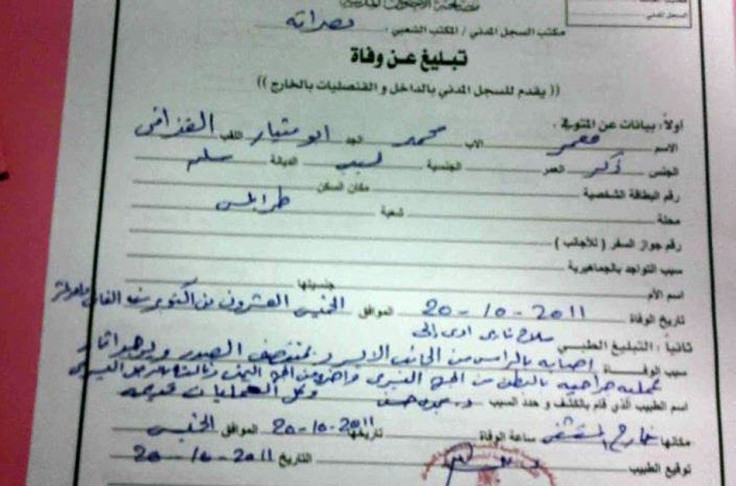 السجل المدني
مكتب السجل المدني / المكتب الشعبي : مصراته
تبليغ عن وفاة
(( يقدم للسجل المدني بالداخل و القنصليات بالخارج ))
أولاً : بيانات عن المتوفى :
الاسم معمر الأب محمد الجد ابو منيار اللقب القذافي
الجنس ذكر العمر الجنسية ليبي الديانة مسلم
رقم البطاقة الشخصية مكان السكن
محلة شعبية طرابلس
رقم جواز السفر ( للأجانب )
سبب التواجد بالجماهيرية
اسم الأم جنسيتها
تاريخ الوفاة 2011 - 10 - 20 الموافق الخميس العشرون من اكتوبر سنة الفان
ثانياً : التبليغ الطبي سلاح ناري ادى إلى
سبب الوفاة اصابه بالرأس من الجانب الايسر و بمنتصف الصدر
عملية جراحية بالبطن من الجهة اليسرى واخرى من الجهة اليمنى
اسم الطبيب الذي قام بالكشف و حدد السبب د. وكل العمليات قديمه
مكانها خارج المستشفى ساعة الوفاة تاريخها 2011-10-20 الموافق الخميس
توقيع الطبيب التاريخ 2011 - 10 - 20